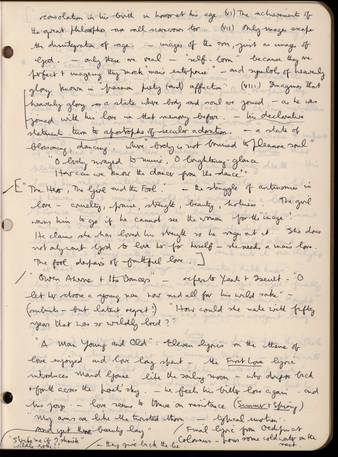 consolation in his birth in honor at his age (vi) The achievement of
the great philosophers - (vii) Only images escape
the disintegration of age - images of the son, just as image of
God. - only these are real - "self-born" because they are
perfect + imaging they mock man's enterprise" - and symbols of heavenly
glory known in passion piety (and) affection (viii) Imagines that
heavenly glory as a state where body and soul are joined - as he was
joined with his love in that memory before. - his declarative
statement turn to apostrophe of secular adoration. - a state of
blossoming, dancing where "body is not bruised to pleasure soul"
"O body swayed to music, O brightening glance
How can we know the dancer from the dance".
"The Hero, The Girl and the Fool". - the struggle of antinomies in
love - cruelty, praise, strength, beauty, holiness. The girl
asks him to go if he cannot see the woman for the image'
He claims she has loved his strength so he rages at it She does
not only want God to love her for herself - she needs a man's love.
The fool despairs of faithful love..]
'Owen Aherne + Its Dancers - refers to Yeats + Iseult - "O
let her choose a young man now and all for his wild sake" -
- but latent regret!) "How could she mate with fifty
years that was so wildly bred?"
"A Man Young and Old" Eleven lyrics on the theme of
love enjoyed and love long spent - the First Love lyric
introduces Maud Gonne like the sailing moon - who
+ forth across the poet's sky - he feels his bitter loss again - and
his joys - love seems to thrive on resistance (Summer + Spring)
My arms are like the twisted thorn - typical emotion
And yet there beauty lay" Final lyric from Oedipus at
Colonus -
- they give back the lie